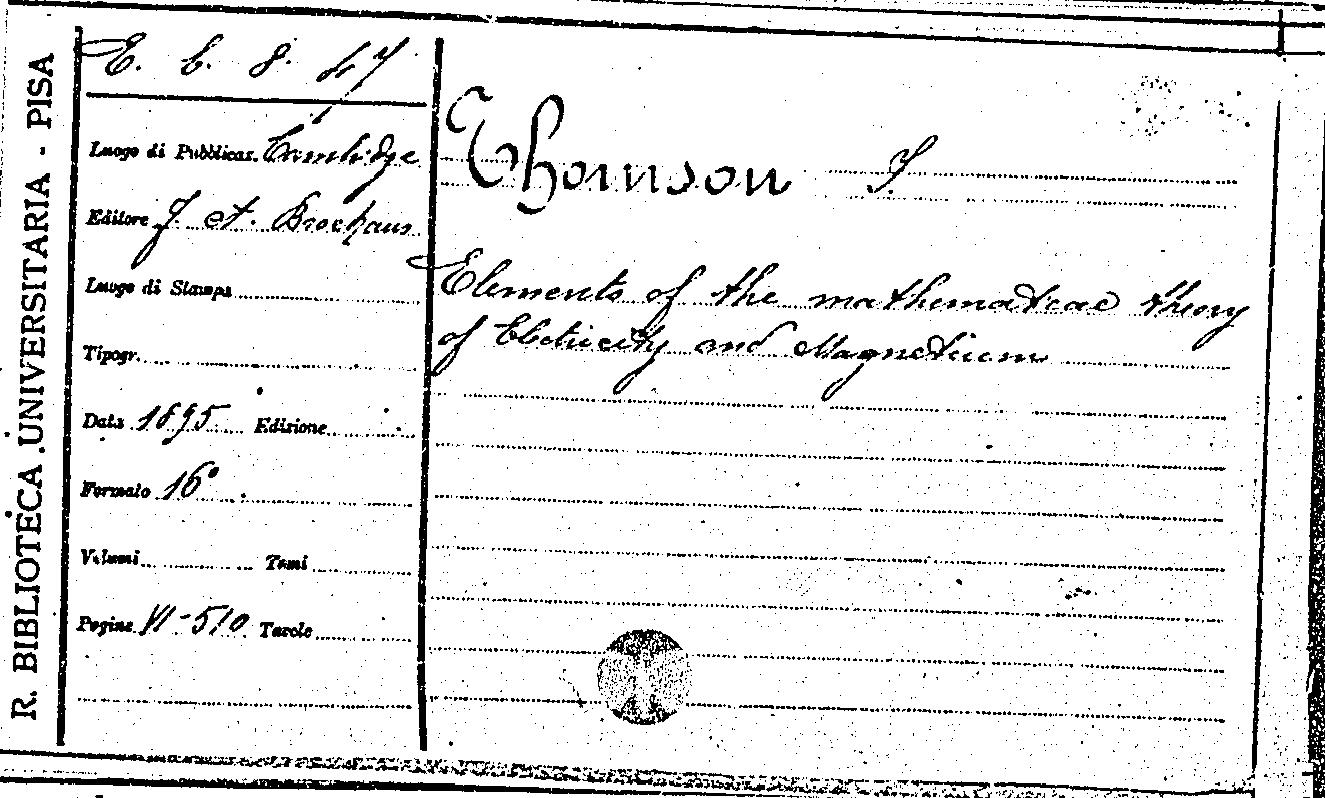 R. BIBLIOTECA UNIVERSITARIA - PISA
E. b. 8. 47
Luogo di Pubblicaz. Cambridge
Editore J. A. Brochaus
Luogo di Stampa
Tipogr.
Data 1895 Edizione
Formato 16°
Volumi Tomi
Pagine VI-510 Tavole
Thomson J.
Elements of the mathematical theory
of Electricity and Magnetism